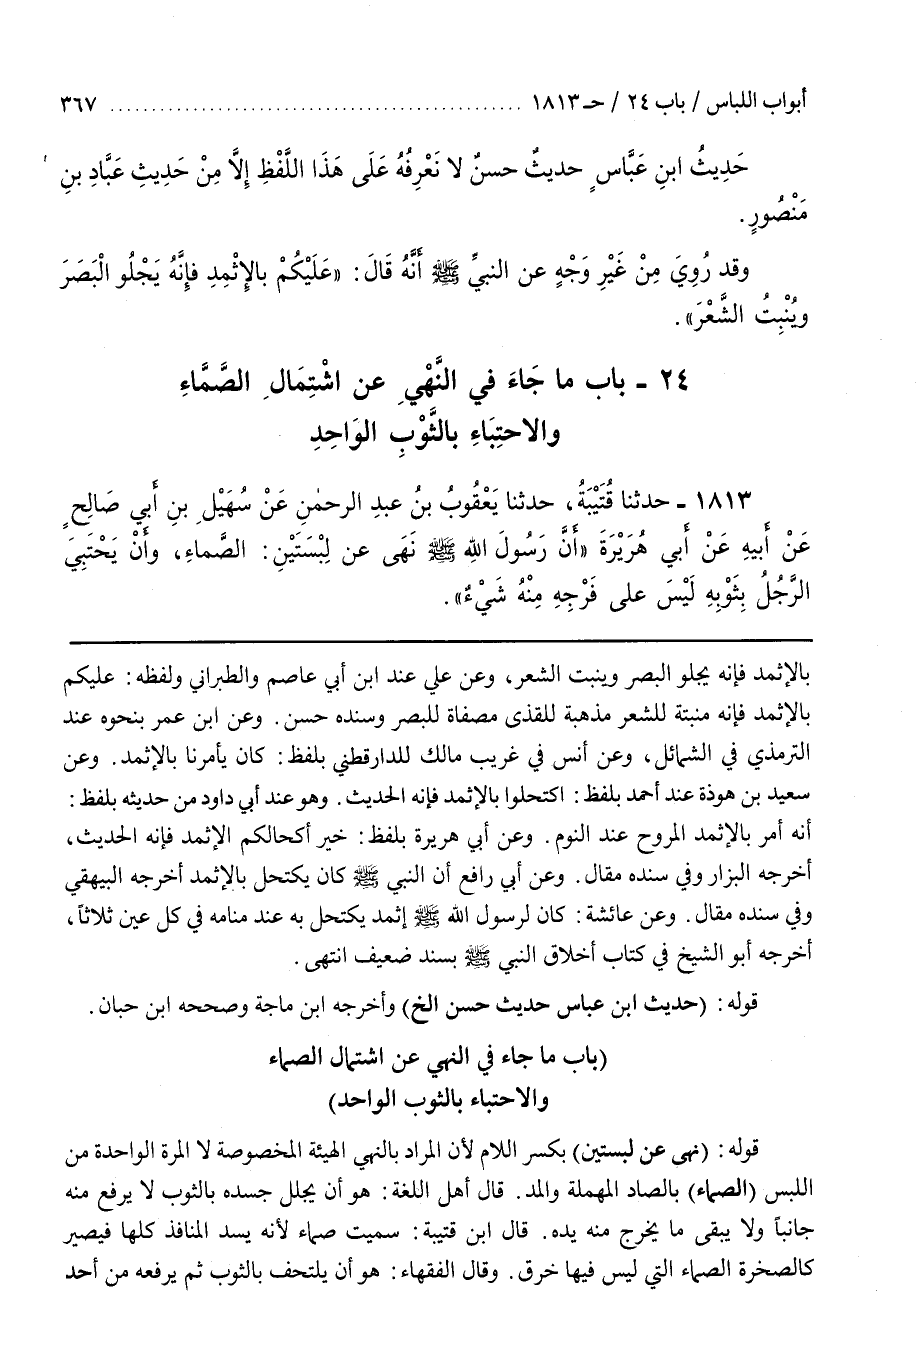 أبواب اللباس / باب ٢٤ / حـ ١٨١٣ ................................................ ٣٦٧
حَدِيثُ ابنِ عَبَّاسٍ حديثٌ حسنٌ لا نَعْرِفُهُ عَلَى هَذَا اللَّفْظِ إِلَّا مِنْ حَدِيثِ عَبَّادِ بنِ
مَنْصُورٍ.
وقد رُوِيَ مِنْ غَيْرِ وَجْهٍ عن النبيِّ ﷺ أَنَّهُ قَالَ: «عَلَيْكُمْ بالإثْمِدِ فإنَّهُ يَجْلُو الْبَصَرَ
ويُنْبِتُ الشَّعْرَ».
٢٤ - باب ما جَاءَ في النَّهْيِ عن اشْتِمَالِ الصَّمَّاءِ
والاحتِبَاءِ بالثَّوْبِ الوَاحِدِ
١٨١٣ - حدثنا قُتَيْبَةُ، حدثنا يَعْقُوبُ بنُ عبدِ الرحمٰنِ عَنْ سُهَيْلِ بنِ أَبي صَالِحٍ
عَنْ أَبيهِ عَنْ أَبي هُرَيْرَةَ «أَنَّ رَسُولَ اللهِ ﷺ نَهَى عن لِبْسَتَيْنِ: الصَّماءِ، وأَنْ يَحْتَبِيَ
الرَّجُلُ بِثَوْبِهِ لَيْسَ على فَرْجِهِ مِنْهُ شَيْءٌ».
بالإثمد فإنه يجلو البصر وينبت الشعر، وعن علي عند ابن أبي عاصم والطبراني ولفظه: عليكم
بالإثمد فإنه منبتة للشعر مذهبة للقذى مصفاة للبصر وسنده حسن. وعن ابن عمر بنحوه عند
الترمذي في الشمائل، وعن أنس في غريب مالك للدارقطني بلفظ: كان يأمرنا بالإثمد. وعن
سعيد بن هوذة عند أحمد بلفظ: اكتحلوا بالإثمد فإنه الحديث. وهو عند أبي داود من حديثه بلفظ:
أنه أمر بالإثمد المروح عند النوم. وعن أبي هريرة بلفظ: خير أكحالكم الإثمد فإنه الحديث،
أخرجه البزار وفي سنده مقال. وعن أبي رافع أن النبي ﷺ كان يكتحل بالإثمد أخرجه البيهقي
وفي سنده مقال. وعن عائشة: كان لرسول الله ﷺ إثمد يكتحل به عند منامه في كل عين ثلاثاً،
أخرجه أبو الشيخ في كتاب أخلاق النبي ﷺ بسند ضعيف انتهى.
قوله: (حديث ابن عباس حديث حسن الخ) وأخرجه ابن ماجة وصححه ابن حبان.
(باب ما جاء في النهي عن اشتمال الصماء
والاحتباء بالثوب الواحد)
قوله: (نهى عن لبستين) بكسر اللام لأن المراد بالنهي الهيئة المخصوصة لا المرة الواحدة من
اللبس (الصماء) بالصاد المهملة والمد. قال أهل اللغة: هو أن يجلل جسده بالثوب لا يرفع منه
جانباً ولا يبقى ما يخرج منه يده. قال ابن قتيبة: سميت صماء لأنه يسد المنافذ كلها فيصير
كالصخرة الصماء التي ليس فيها خرق. وقال الفقهاء: هو أن يلتحف بالثوب ثم يرفعه من أحد